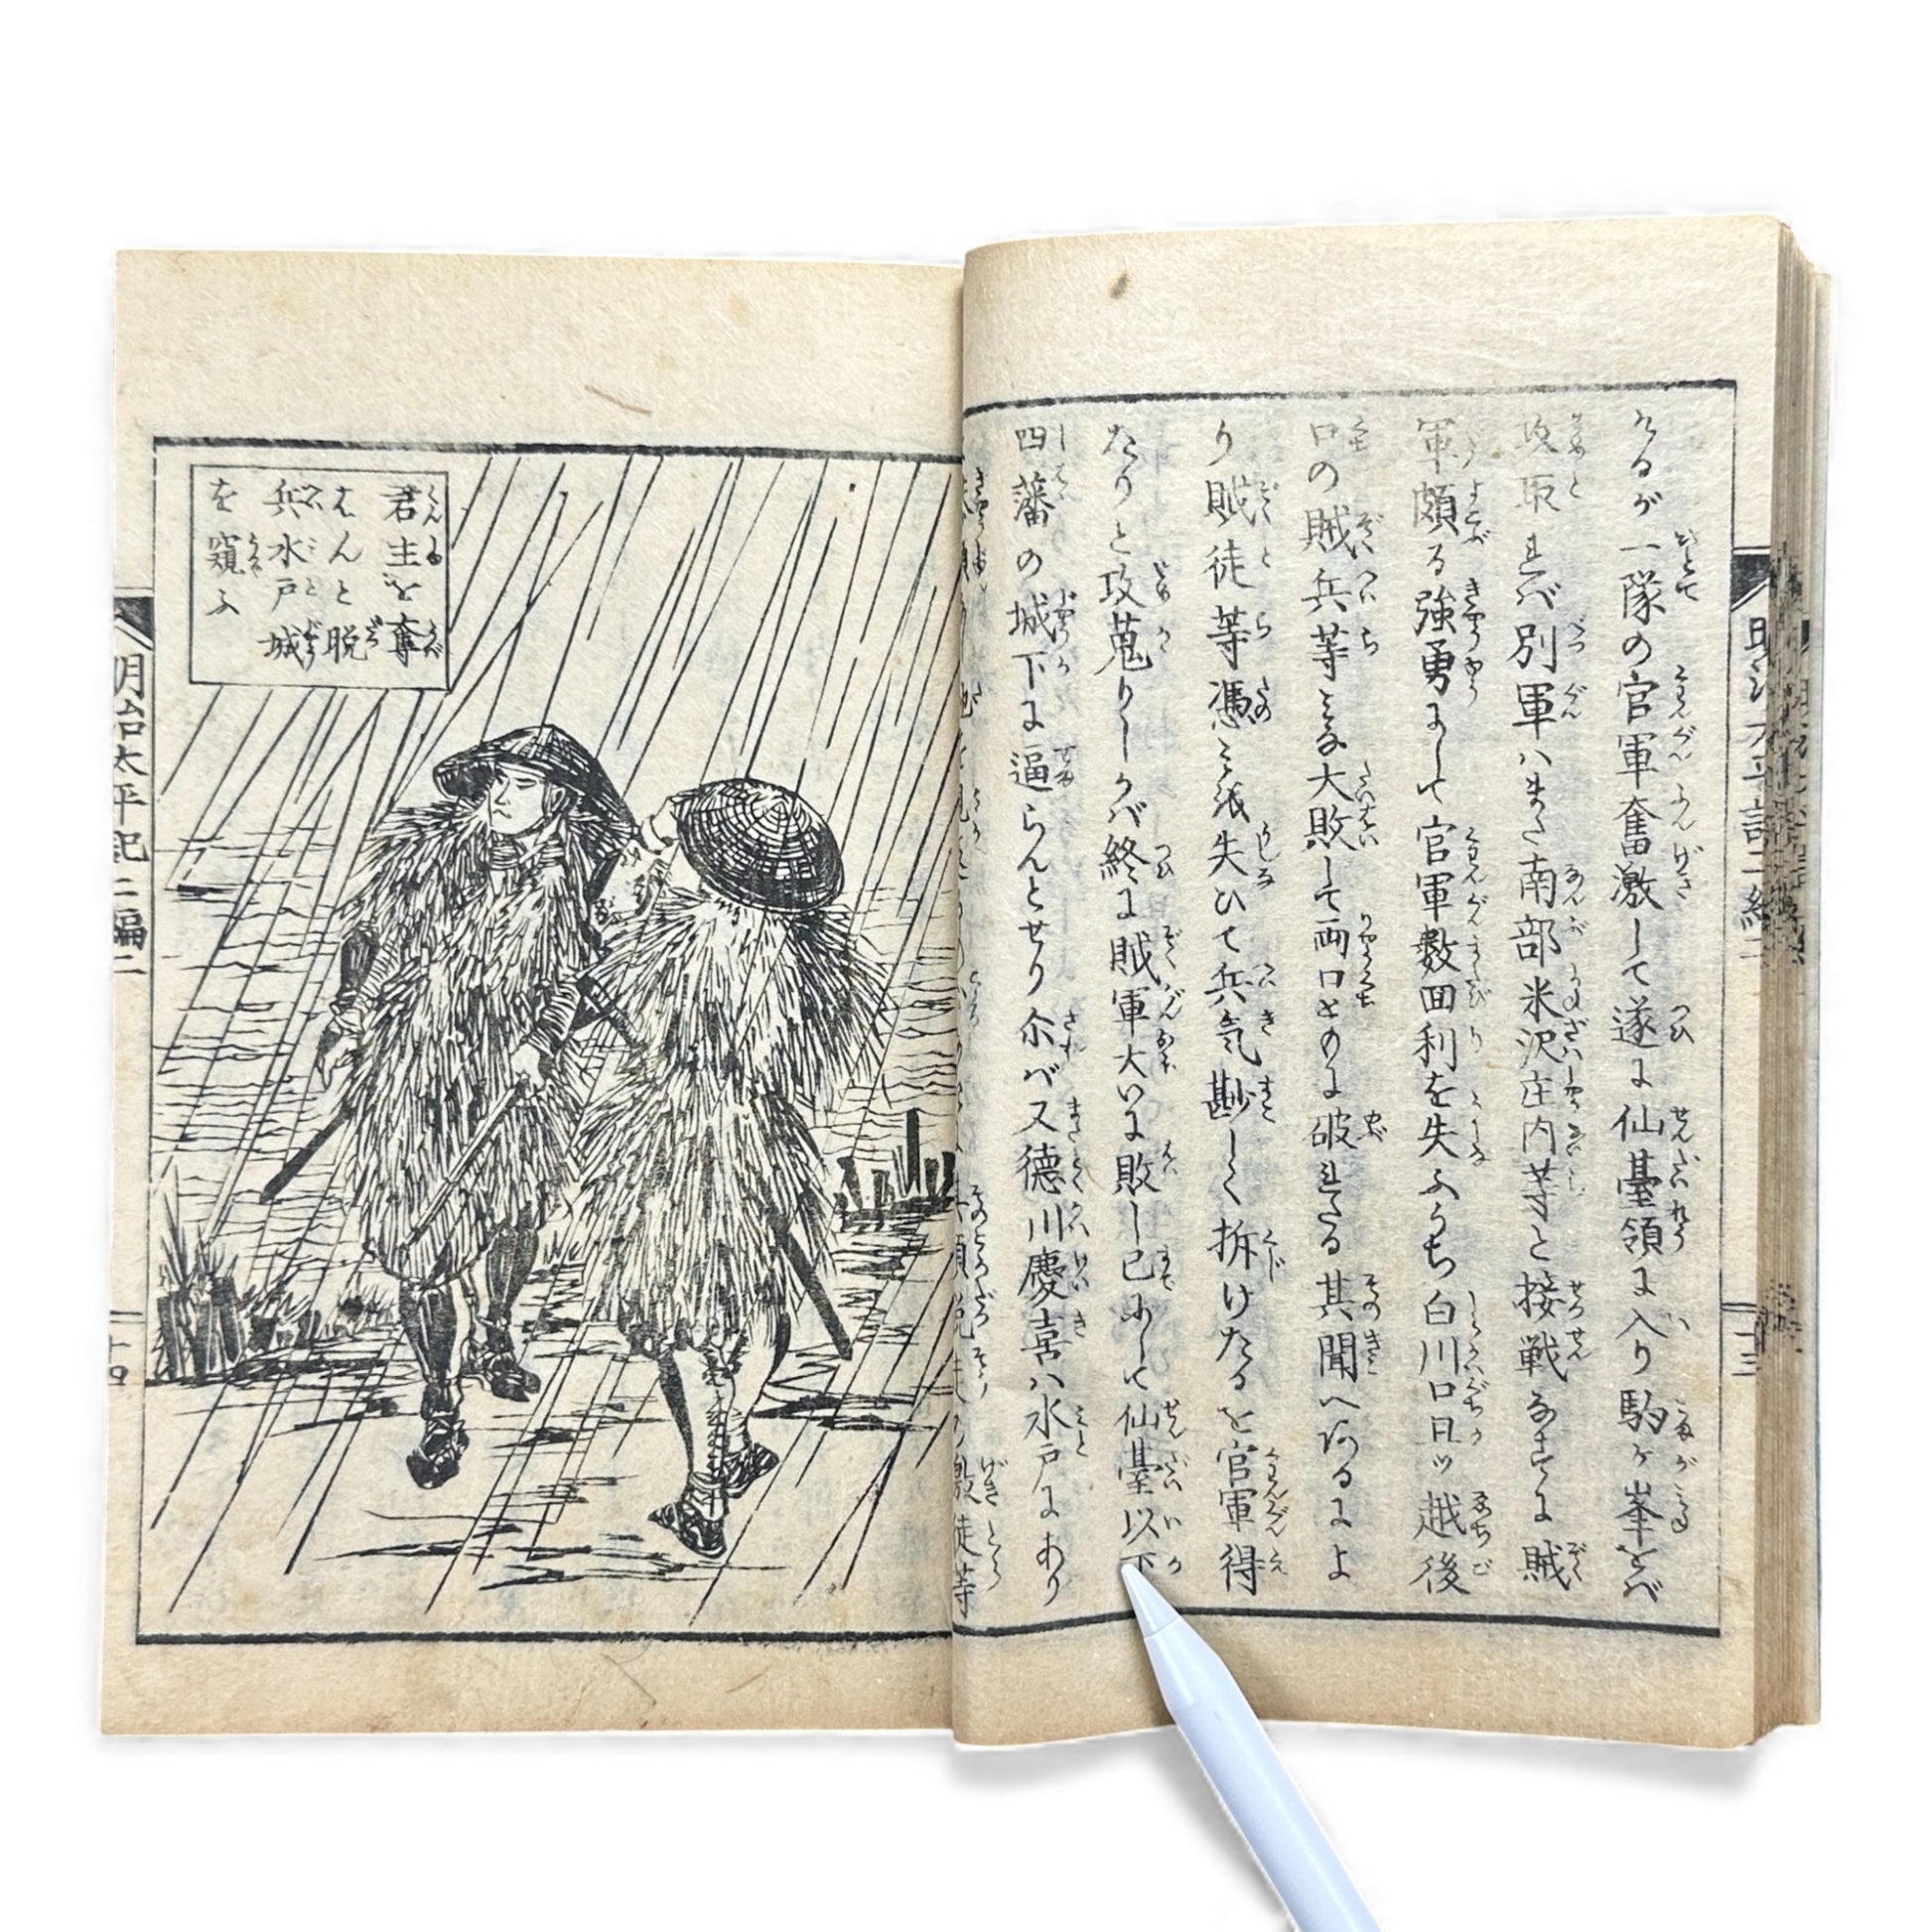 けるが一隊の官軍奮激して遂に仙臺領に入り駒ヶ峯をバ
攻取れバ別軍ハまた南部米沢庄内等と接戦なすに賊
軍頗る強勇にして官軍数回利を失ふうち白川口日ッ越後
口の賊兵等ミな大敗して両口とのに破れたる其聞へあるによ
り賊徒等憑ミを失ひて兵気尠しく拆けたるを官軍得
たりと攻蒐りしかバ終に賊軍大いに敗し已にして仙臺以下
四藩の城下に逼らんとせり尓バ又徳川慶喜ハ水戸にあり
徒等
君主を奪
はんと脱
兵水戸城
を窺ふ
明治太平記二編二
十四